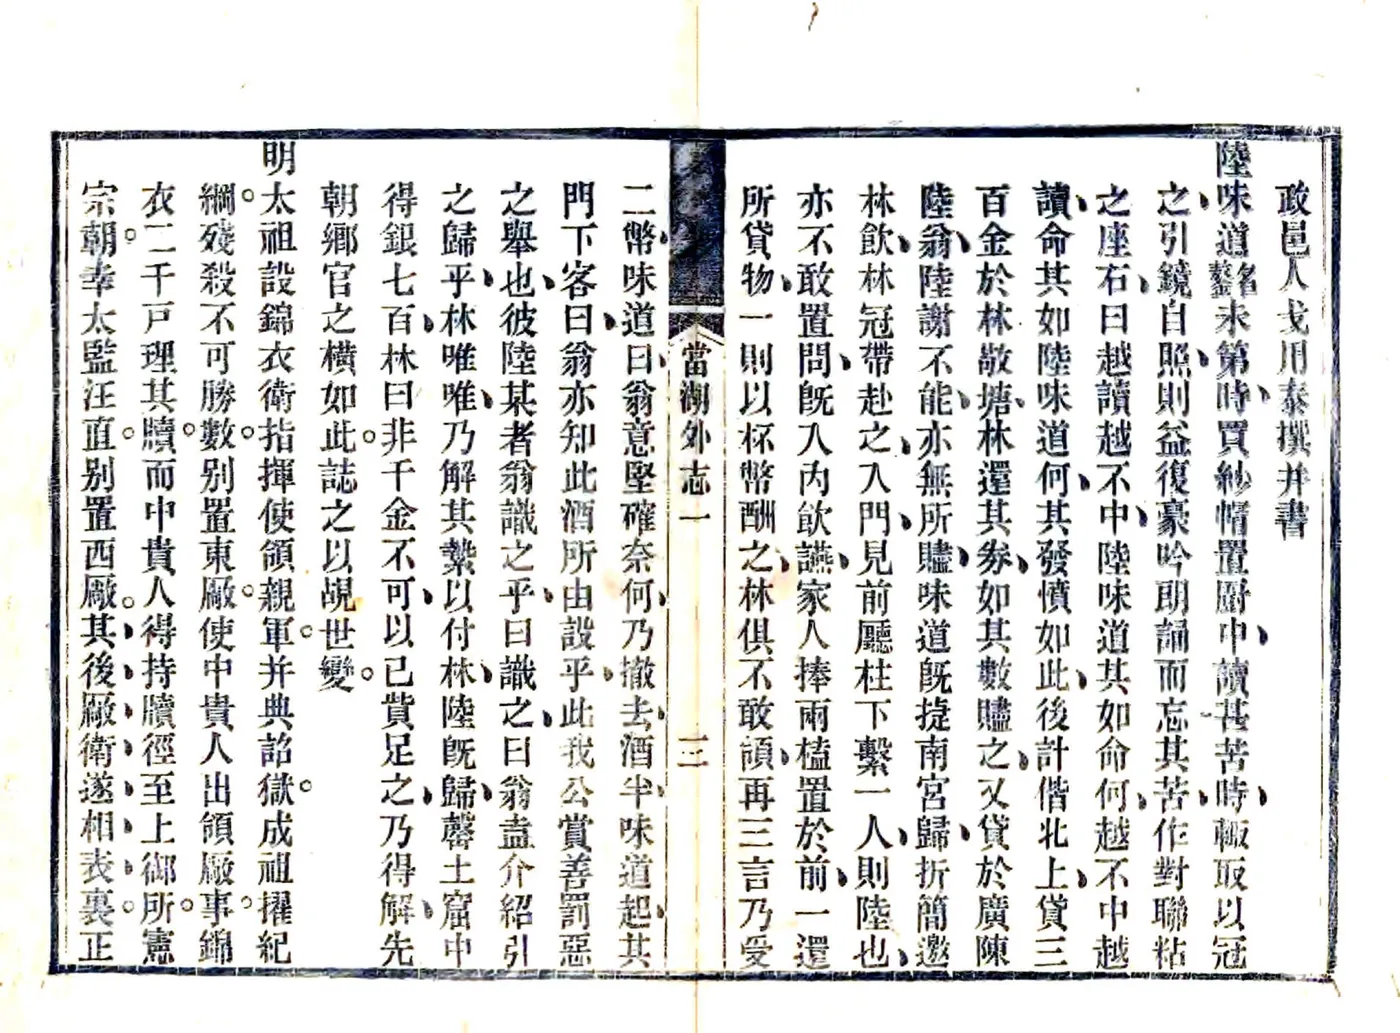 政邑人戈用泰撰并書
陸味道名鏊未第時買紗帽置厨中讀甚苦時輒取以冠
之引鏡自照則益復豪吟朗誦而忘其苦作對聯粘
之座右曰越讀越不中陸味道其如命何越不中越
讀命其如陸味道何其發憤如此後計偕北上貸三
百金於林敬塘林還其券如其數贐之又貸於廣陳
陸翁陸謝不能亦無所贐味道旣捷南宮歸折簡邀
林飲林冠帶赴之入門見前廳柱下繫一人則陸也
亦不敢置問旣入內飲讌家人捧兩榼置於前一還
所貸物一則以杯幣酬之林俱不敢領再三言乃受
當湖外志一
三
二幣味道曰翁意堅確奈何乃撤去酒半味道起其
門下客曰翁亦知此酒所由設乎此我公賞善罰惡
之舉也彼陸某者翁識之乎曰識之曰翁盍介紹引
之歸乎林唯唯乃解其縶以付林陸旣歸罄土窟中
得銀七百林曰非千金不可以已貲足之乃得解先
朝鄉官之橫如此誌之以覘世變
明太祖設錦衣衛指揮使領親軍并典詔獄成祖擢紀
綱殘殺不可勝數别置東厰使中貴人出領厰事錦
衣二千戸理其牘而中貴人得持牘徑至上御所憲
宗朝幸太監汪直别置西厰其後厰衛遂相表裏正